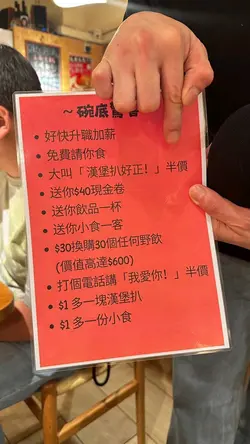 ～碗底驚喜～
• 好快升職加薪
• 免費請你食
• 大叫「漢堡扒好正！」半價
• 送你$40現金卷
• 送你飲品一杯
• 送你小食一客
• $30換購30個任何野飲
(價值高達$600)
• 打個電話講「我愛你！」半價
• $1 多一塊漢堡扒
• $1 多一份小食